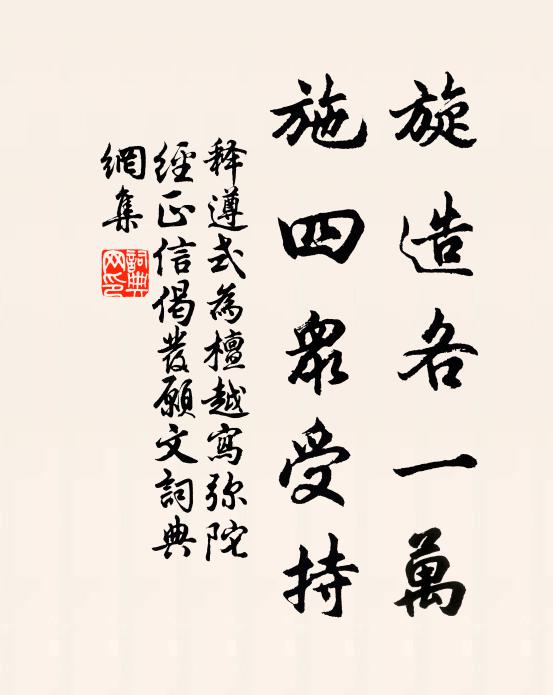 旋造各一萬
施四眾受持
释遵式為檀越寫弥陀
經正信偈發願文詞典
網集
詞典
网印